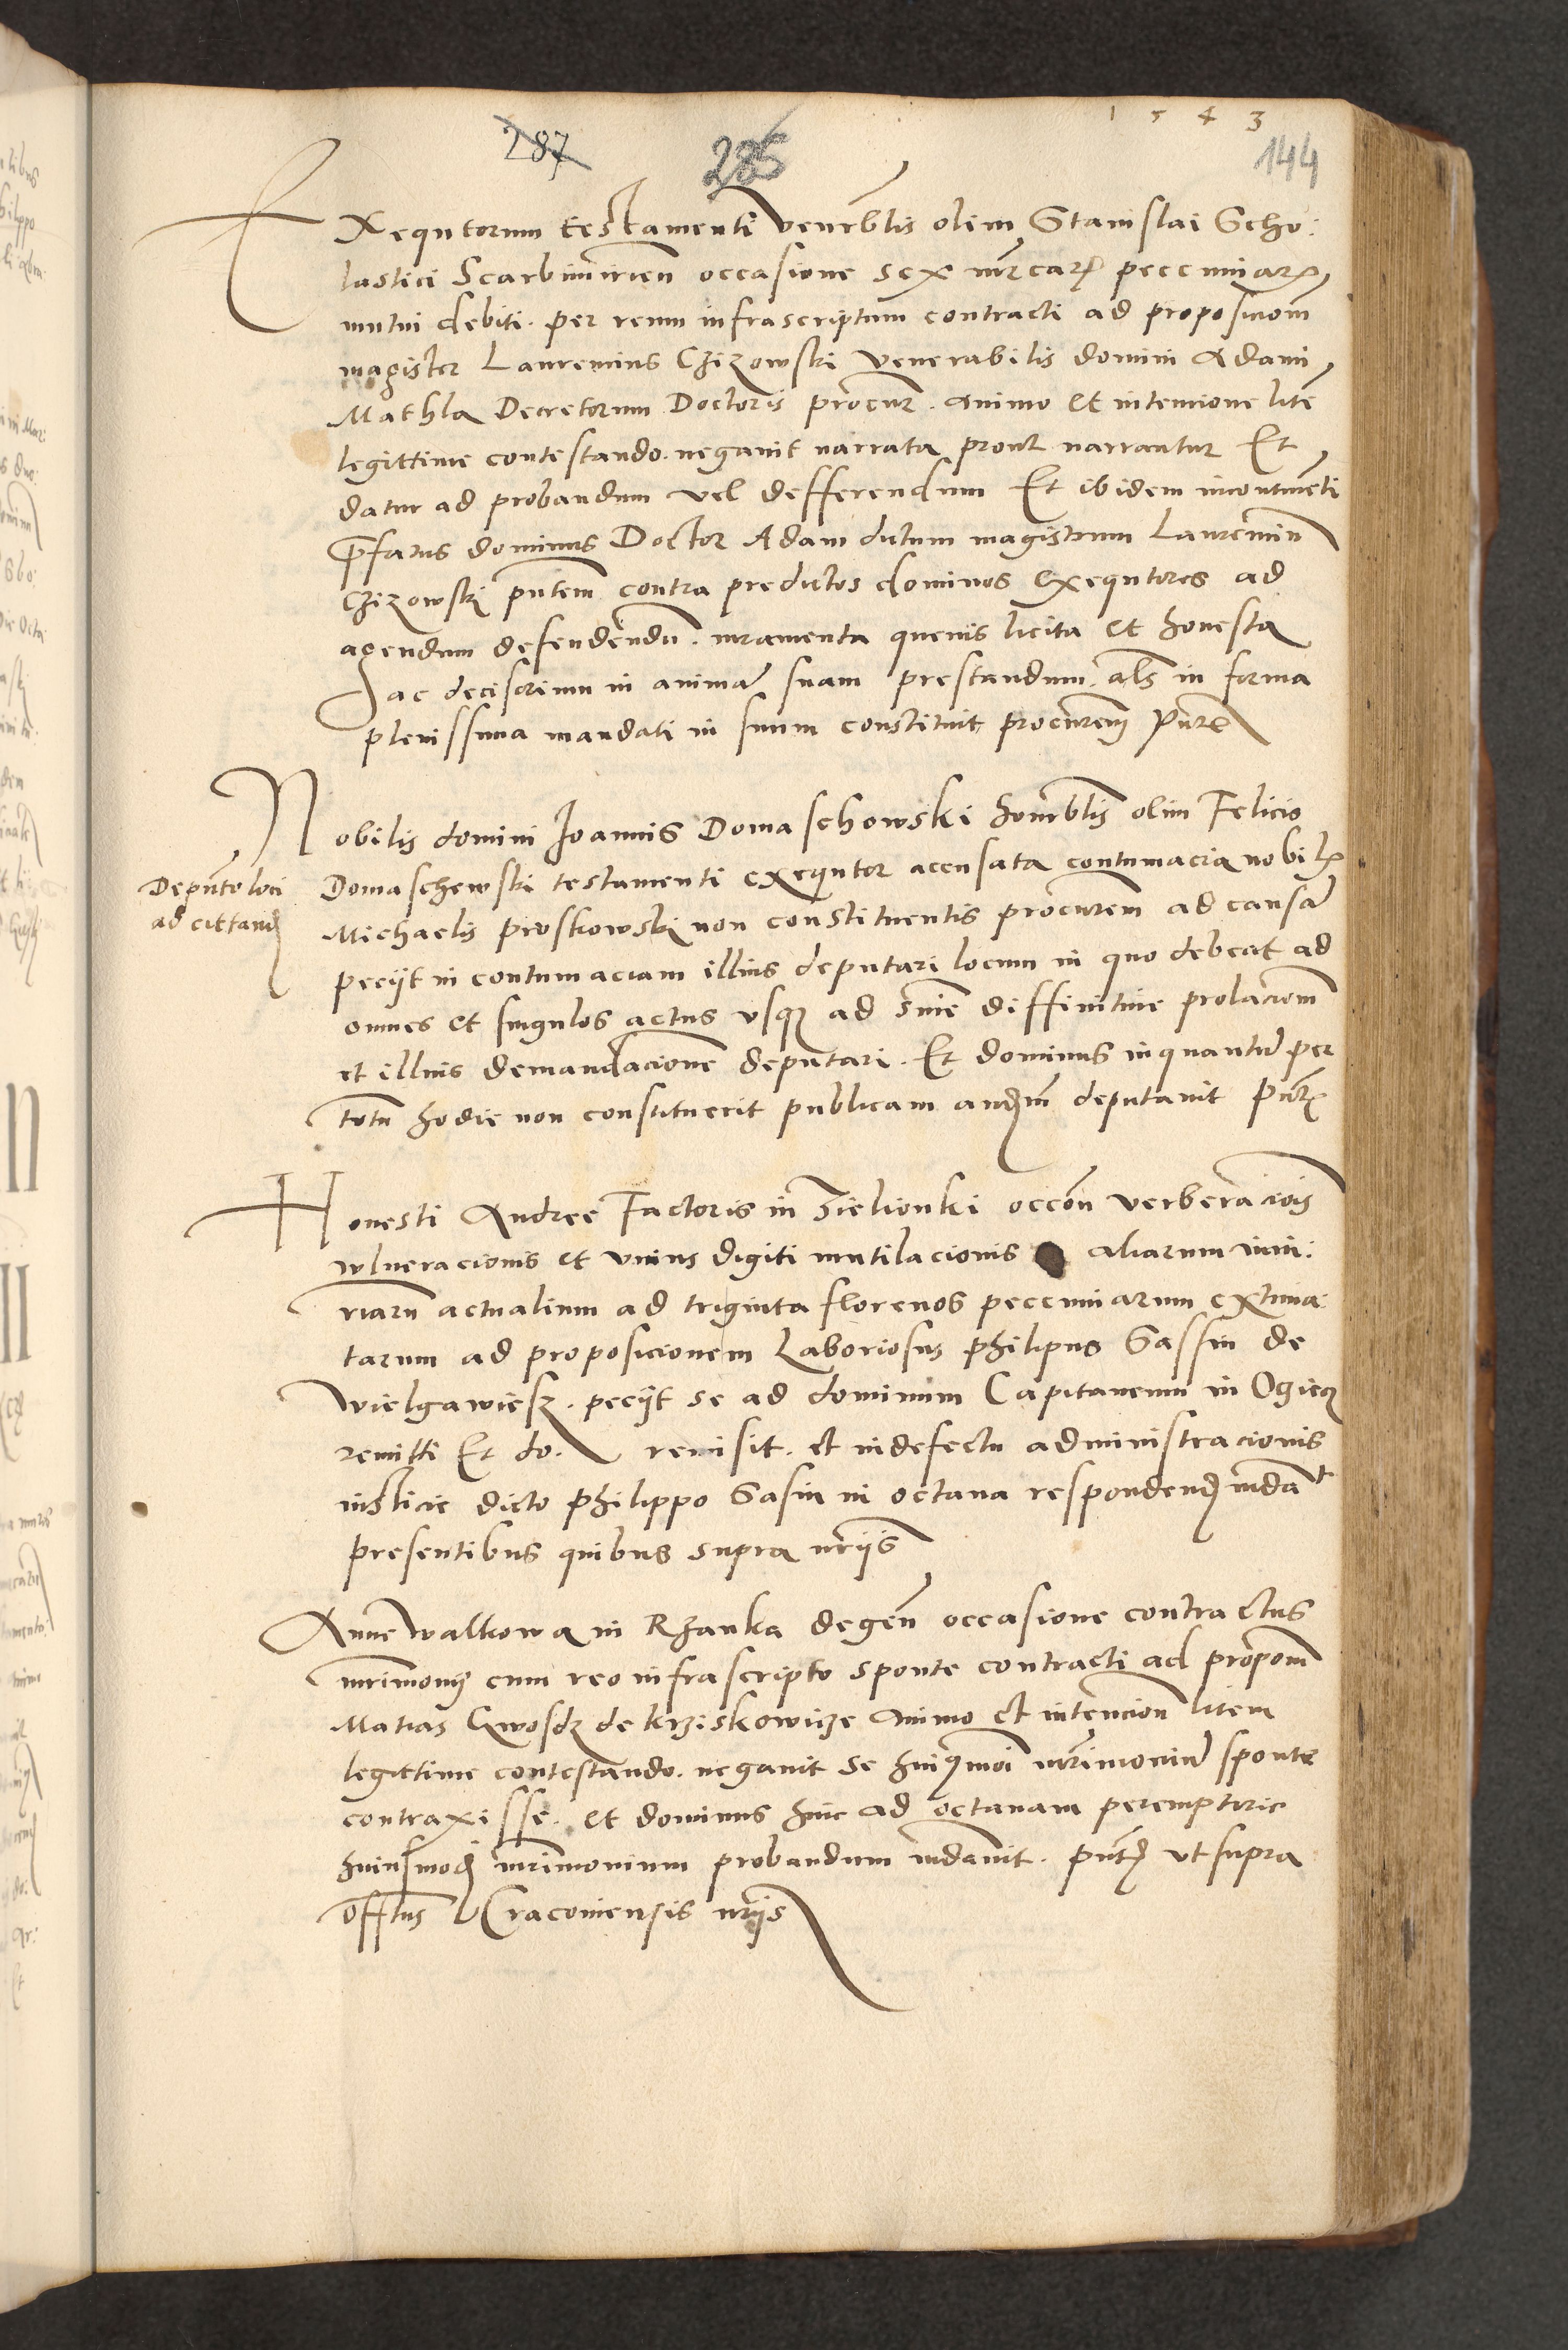 1543
287
285
144
Exequtorum testamenti venerblis olim Stanislai Scho:
lastici Scarbimirien occasione sex mrcar peccuniar
mutui debiti. per reum infrascriptum contracti ad proposiciom
magister Laurencius Czizowski venerabilis domini Adami
Mathla Decretorum Doctoris procur. animo et intencione lite
legittime contestando. negavit narrata prout narrantur Et
datur ad probandum vel defferendum Et ibidem incontinenti
pfatus dominus Doctor Adam dictum magistrum Laurenciu
Czizowski pntem contra predictos dominos exequtores ad
agendum defendendu. iuramenta quevis licita et honesta
ac decisoriu in anima suam prestandum. als in forma
plenissima mandati in suum constituit procurem Pntb
Nobilis domini Joannis Domaschowski honrblis olim Felicis
Domaschewski testamenti exequtor accusata contumacia nobil
Michaelis Proskowski non constituentis procurem ad causa
peciit in contumaciam illius deputari locum in quo debeat ad
omnes et singulos actus usq ad snie diffinitive prolaciom
et illius demandacione deputari. Et dominus inquantu per
totu hodie non constituerit publicam audm deputavit Pntb
Deputo loci
ad cittand
Honesti Andree Factoris in Zielionki occon verberaciois
wlneracionis et unius digiti mutilacionis aliarum iniu:
riaru actualium ad triginta florenos peccuniarum extima:
tarum ad proposicionem Laboriosus Philipus Gassin de
Wielgawiesz. peciit se ad dominum Capitaneum in Ogiecz
remitti Et do. remisit. et in defectu administracionis
iusticie dicto Philippo Gasin in octava respondend mdat
presentibus quibus supra nriis
Anne Walkowa in Rzanka degen occasione contractus
mrimonii cum reo infrascripto sponte contracti ad propom
Matias Gwosdz de Krziskowicze animo et intencion litem
legittime contestando. negavit se huiusmoi mrimoniu sponte
contraxisse. et dominus huic ad octavam peremptorie
huiusmod mrimonium probandum mdavit. Pntb ut supra
offtus Cracoviensis nriis